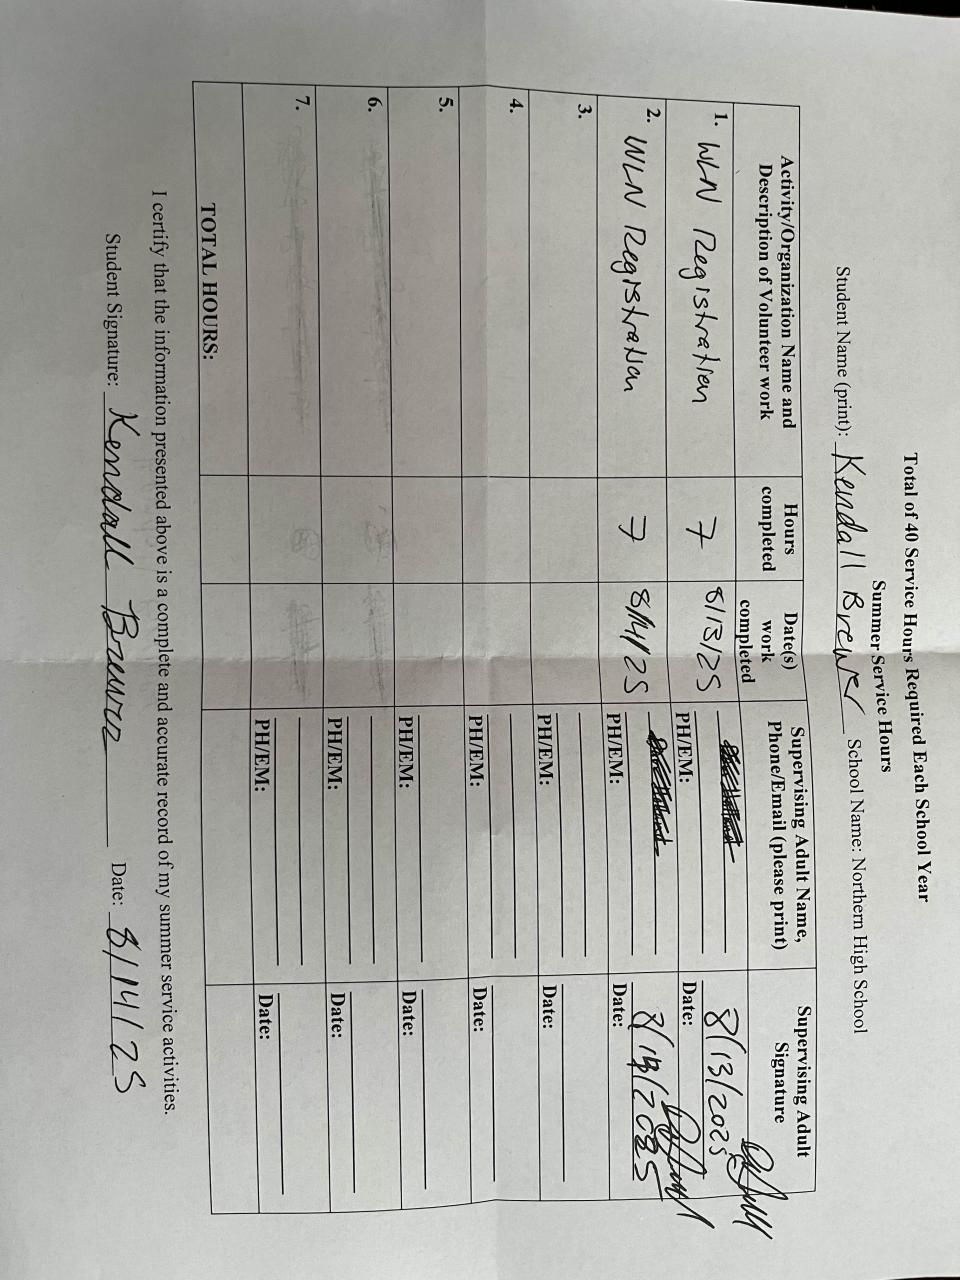 Total of 40 Service Hours Required Each School Year
Summer Service Hours
Student Name (print): Kendall Brewer School Name: Northern High School
Activity/Organization Name and Description of Volunteer work
Hours completed
Date(s) work completed
Supervising Adult Name, Phone/Email (please print)
Supervising Adult Signature
1. WLN Registration 7 8/13/25 PH/EM: Date: 8/13/2025
2. WLN Registration 7 8/14/25 PH/EM: Date:
3. PH/EM: Date:
4. PH/EM: Date:
5. PH/EM: Date:
6. PH/EM: Date:
7. PH/EM: Date:
TOTAL HOURS:
I certify that the information presented above is a complete and accurate record of my summer service activities.
Student Signature: Kendall Brewer Date: 8/14/25